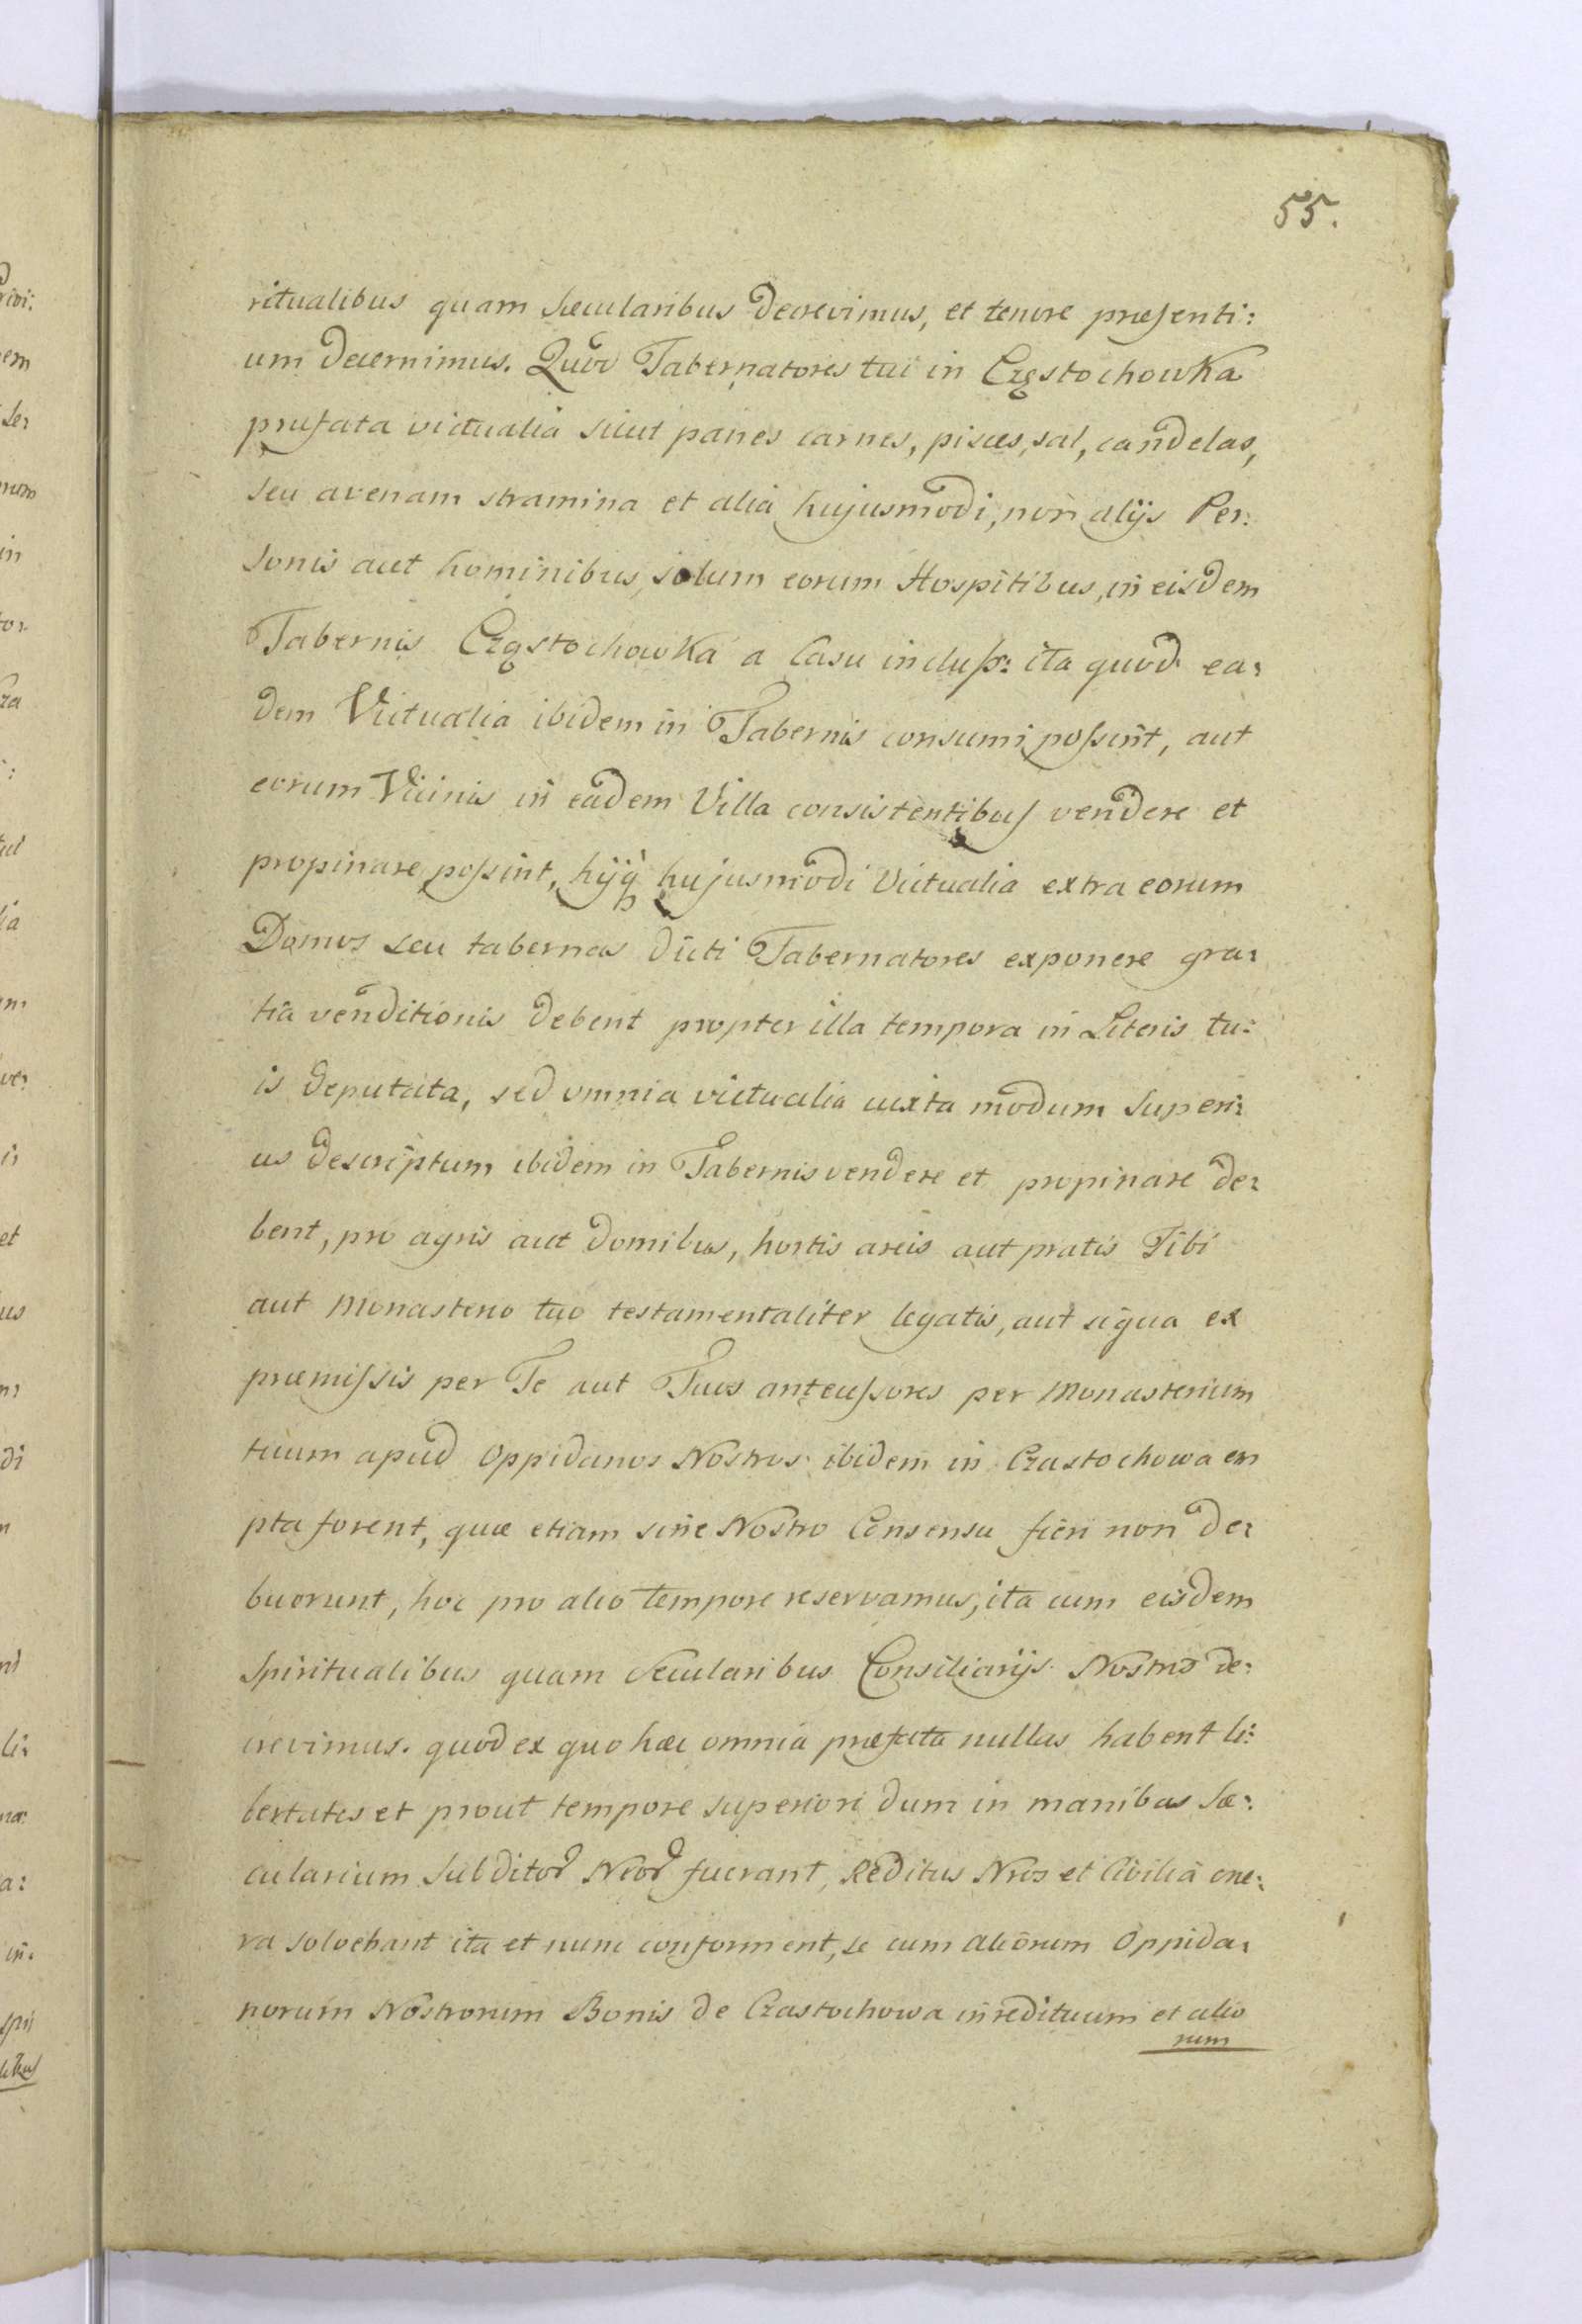 55.
ritualibus quam sæcularibus decrevimus, et tenore præsenti:
um decernimus. Quod Tabernatores tui in Częstochowka
præfata victualia sicut panes carnes, pisces, sal, candelas,
seu avenam stramina et alia hujusmodi, non alijs Per:
sonis aut hominibus, solum eorum Hospitibus, in eisdem
Tabernis Cząstochowka a Casu ita quod ea:
dem Victualia ibidem in Tabernis consumi possint, aut
eorum Vicinis in eadem Villa consistentibus vendere et
propinare possint, hujusmodi Victualia extra eorum
Domos seu tabernas dicti Tabernatores exponere gra:
tia venditionis debent propter illa tempora in Literis tu:
is deputata, sed omnia victualia iuxta modum superi:
us descriptum ibidem in Tabernis vendere et propinare de:
bent, pro agris aut domibus, hortis areis aut pratis Tibi
aut Monasterio tuo testamentaliter legatis, aut siqua ex
præmissis per Te aut Tuos antecessores per Monasterium
tuum apud Oppidanos Nostros ibidem in Czastochowa em
pta forent, quæ etiam sine Nostro Consensu fieri non de:
buerunt, hoc pro alio tempore reservamus, ita cum eisdem
Spiritualibus quam Secularibus Consiliarijs Nostris de:
crevimus. quod ex quo hæc omnia præfata nullas habent li:
bertates et prout tempore superiori dum in manibus Sæ:
cularium Subditor Nror fuerant, Reditus Nros et Civilia one:
ra solvebant ita et nunc conforment, se cum aliorum Oppida:
norum Nostrorum Bonis de Czastochowa in redituum et alio
rum